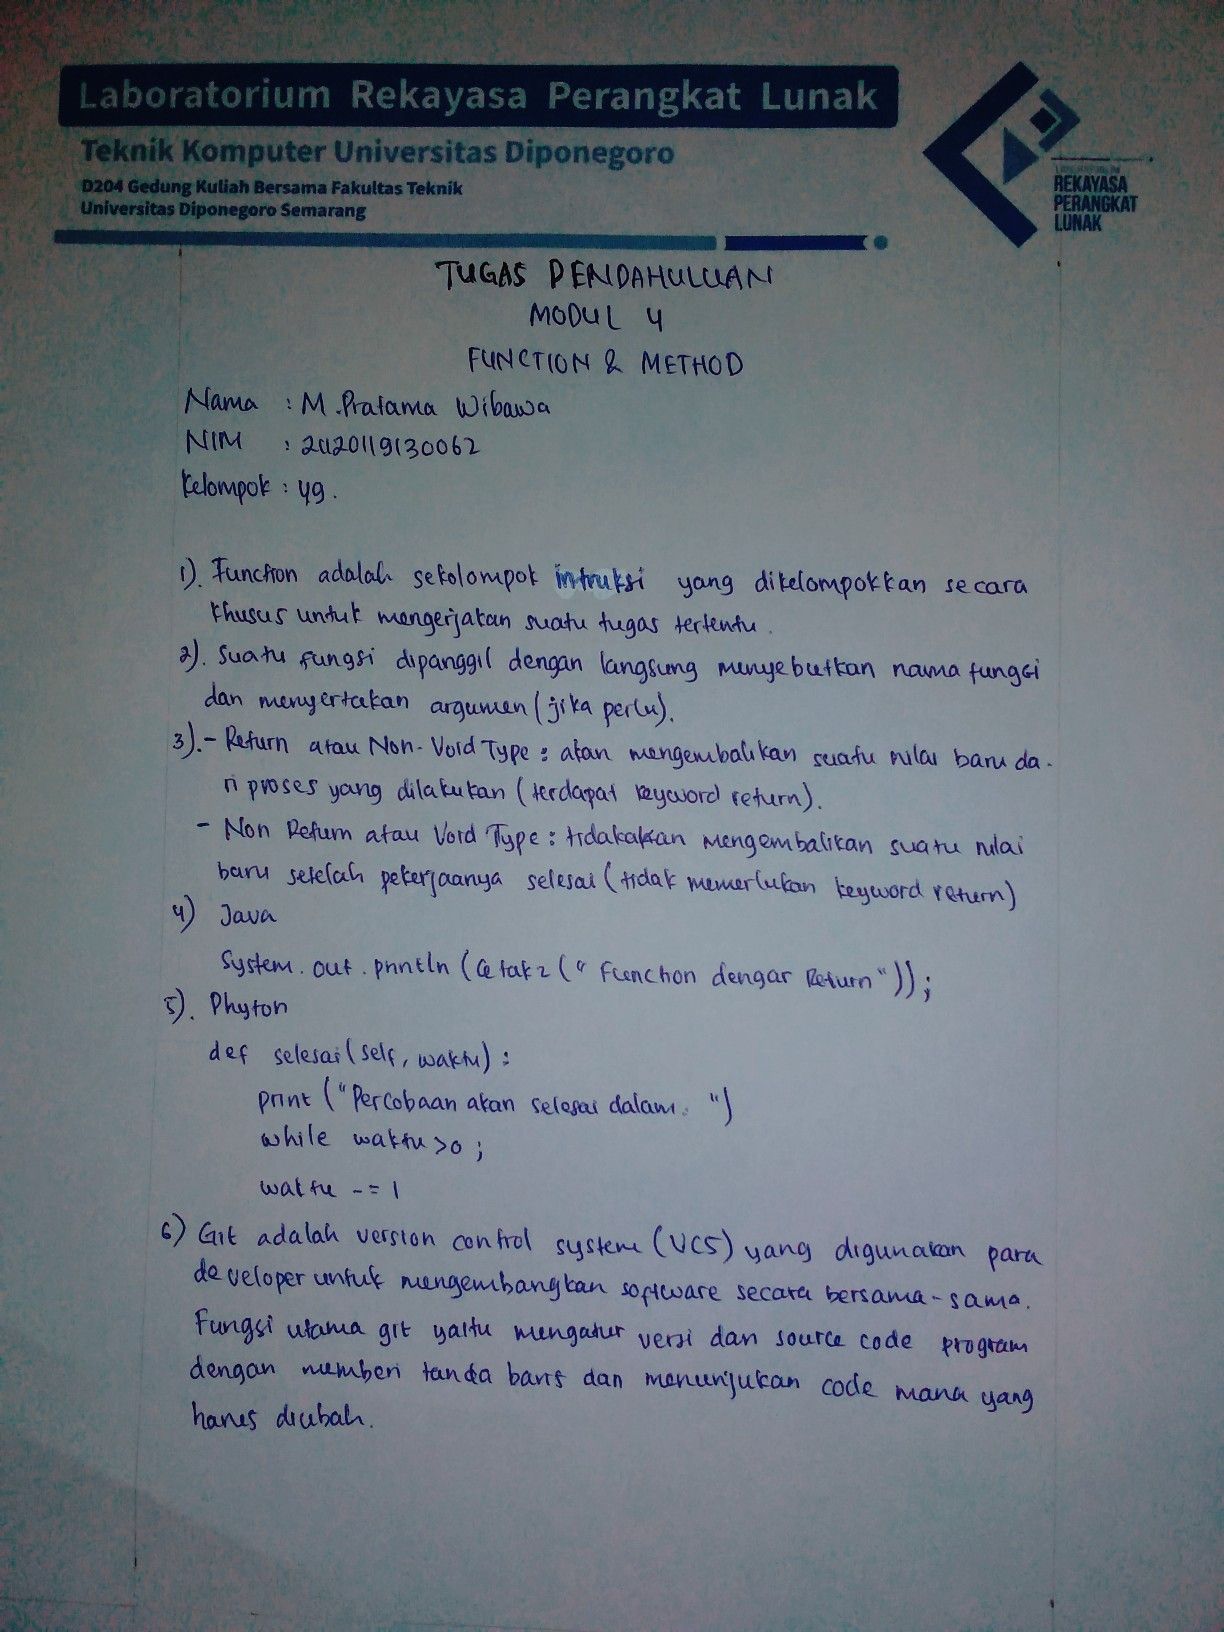 Laboratorium Rekayasa Perangkat Lunak
Teknik Komputer Universitas Diponegoro
D204 Gedung Kuliah Bersama Fakultas Teknik
Universitas Diponegoro Semarang
REKAYASA
PERANGKAT
LUNAK
TUGAS PENDAHULUAN
MODUL 4
FUNCTION & METHOD
Nama : M.Pratama Wibawa
NIM : 21120119130062
Kelompok : 49.
1). Function adalah sekolompok intruksi yang dikelompokkan secara
khusus untuk mengerjakan suatu tugas tertentu.
2). Suatu fungsi dipanggil dengan langsung menyebutkan nama fungsi
dan menyertakan argumen (jika perlu).
3). - Return atau Non-Void Type : akan mengembalikan suatu nilai baru da-
ri proses yang dilakukan (terdapat keyword return).
- Non Return atau Void Type : tidak akan mengembalikan suatu nilai
baru setelah pekerjaanya selesai (tidak memerlukan keyword return)
4) Java
System.out.println (Cetak2 ("Function dengar Return"));
5). Phyton
def selesai (self, waktu) :
print ("Percobaan akan selesai dalam. ")
while waktu >0 ;
waktu -= 1
6) Git adalah version control system (VCS) yang digunakan para
developer untuk mengembangkan software secara bersama-sama.
Fungsi utama git yaitu mengatur versi dan source code program
dengan memberi tanda baris dan menunjukan code mana yang
harus diubah.